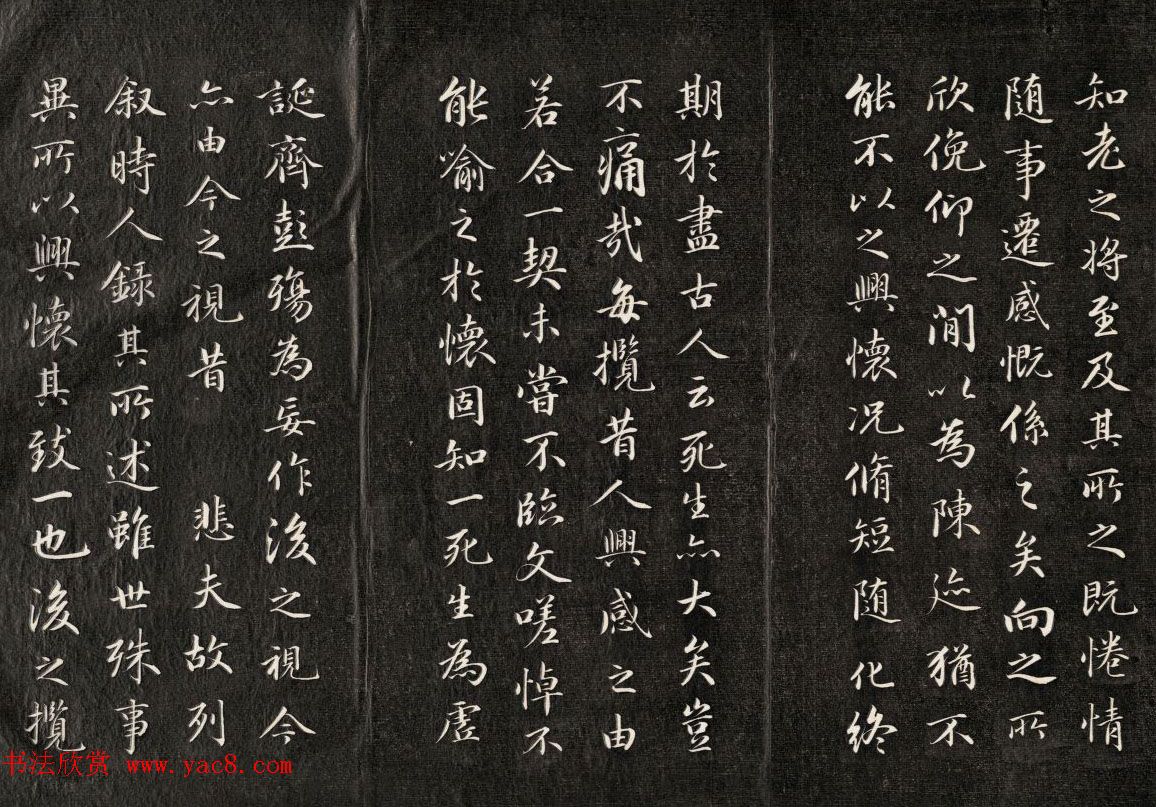 知老之将至及其所之既惓情
随事遷感慨係之矣向之所
欣俛仰之間以為陳迹猶不
能不以之興懷况脩短随化終
期於盡古人云死生亦大矣豈
不痛哉每攬昔人興感之由
若合一契未嘗不臨文嗟悼不
能喻之於懷固知一死生為虗
誕齊彭殤為妄作後之視今
亦由今之視昔 悲夫故列
叙時人錄其所述雖世殊事
異所以興懷其致一也後之攬
书法欣赏 www.yac8.com